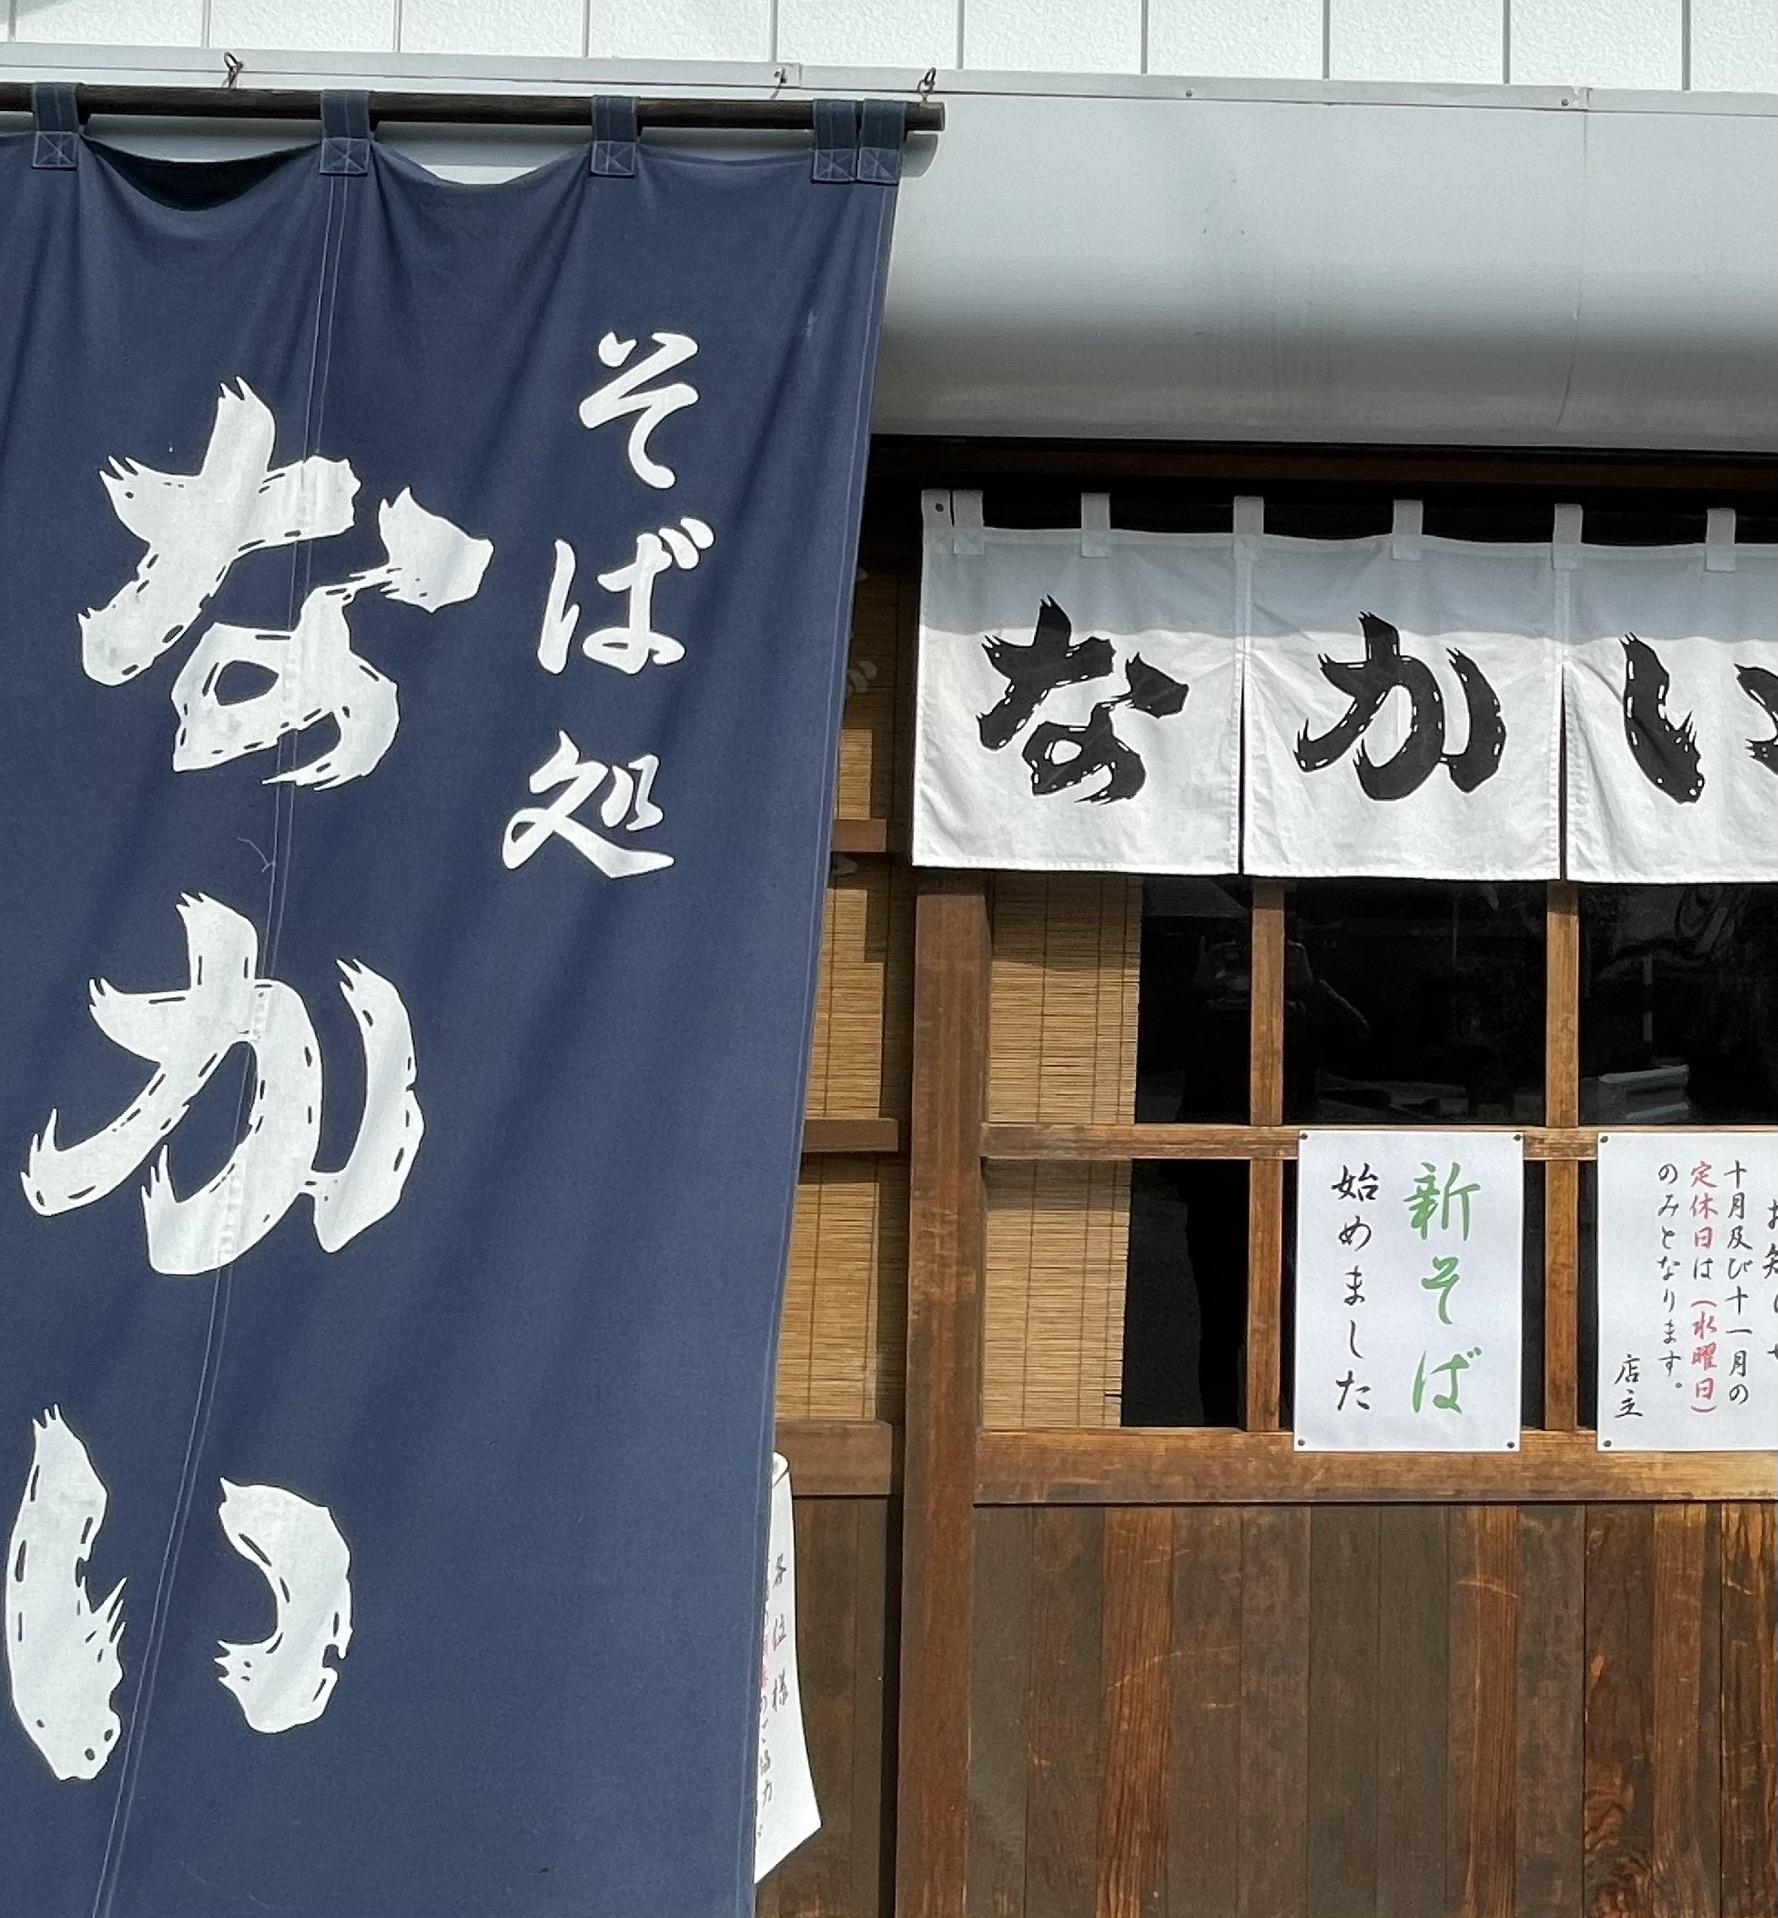 そば処
なかい
なかい
新そば
始めました
十月及び十一月の
定休日は(水曜日)
のみとなります。
店主
各位様